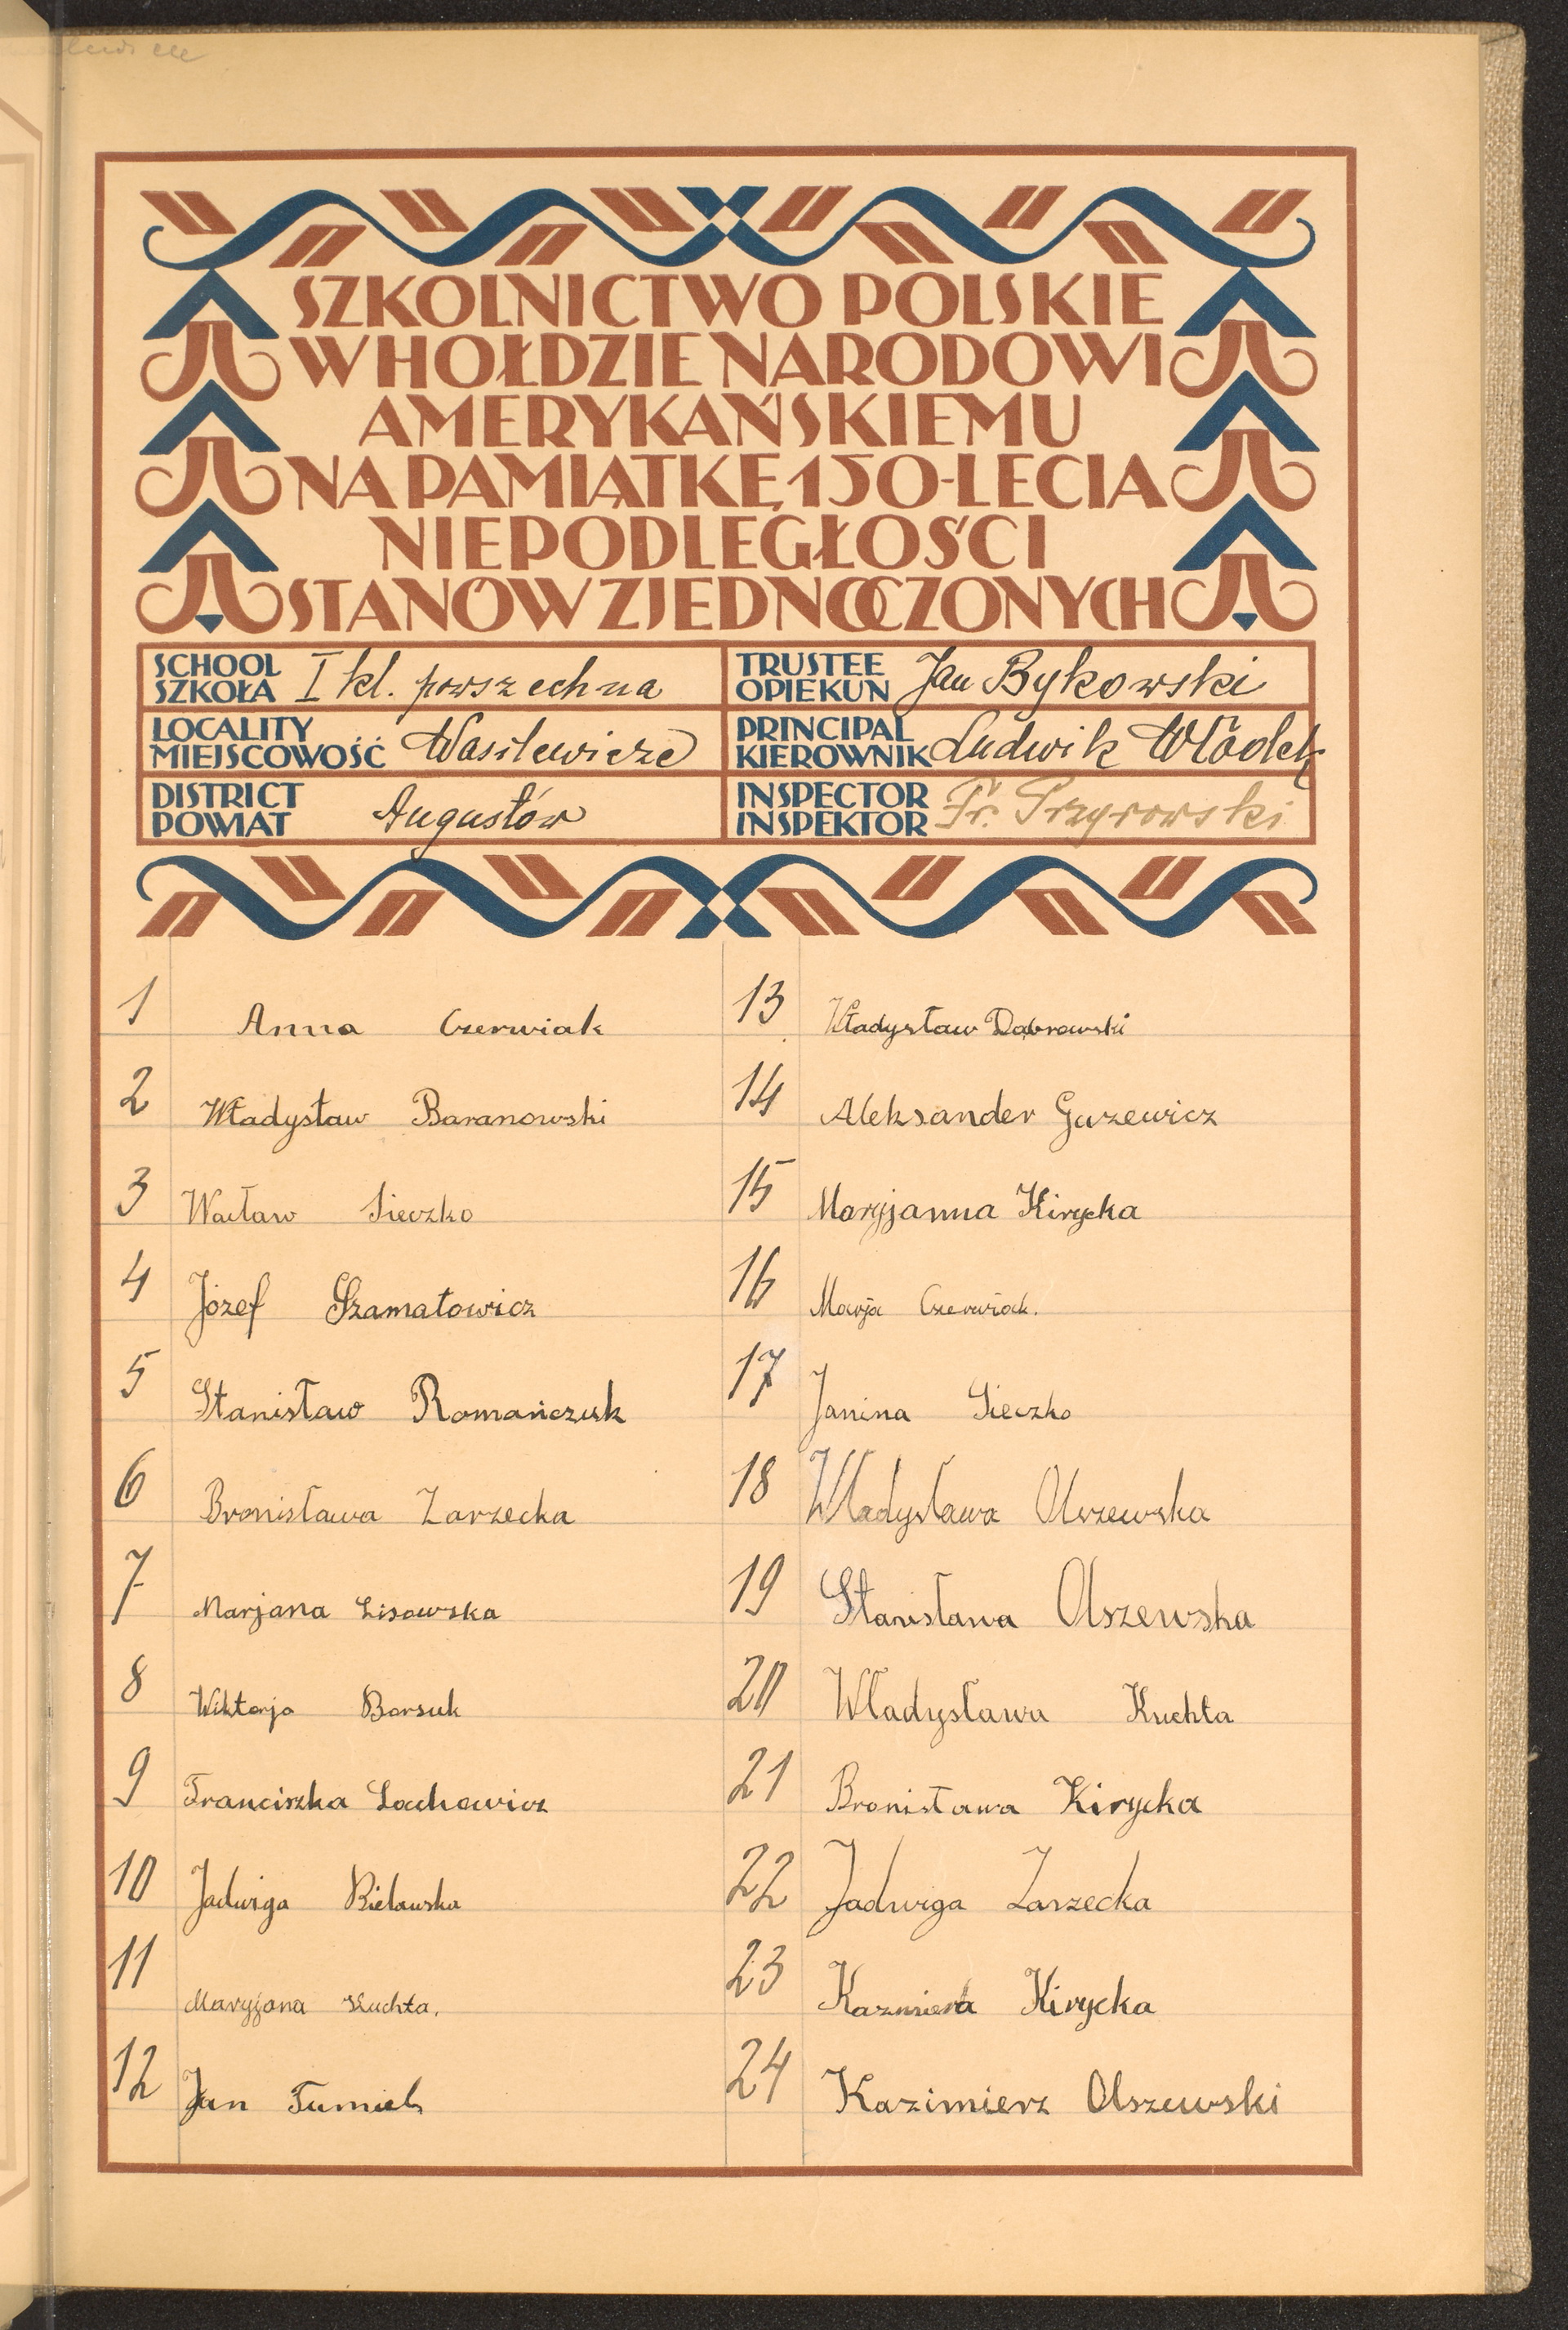 SZKOLNICTWO POLSKIE
W HOŁDZIE NARODOWI
AMERYKAŃSKIEMU
NA PAMIĄTKĘ 150-LECIA
NIEPODLEGŁOŚCI
STANÓW ZJEDNOCZONYCH
SCHOOL
SZKOŁA I kl. powszechna
TRUSTEE
OPIEKUN Jan Bykowski
LOCALITY
MIEJSCOWOŚĆ Wasilewicze
PRINCIPAL
KIEROWNIK Ludwik Włodek
DISTRICT
POWIAT Augustów
INSPECTOR
INSPEKTOR Fr. Przyrowski
1 Anna Czerwiak
2 Władysław Baranowski
3 Wacław Sieczko
4 Józef Szamatowicz
5 Stanisław Romańczuk
6 Bronisława Zarzecka
7 Marjana Lisowska
8 Wiktorja Borsuk
9 Franciszka Lachowicz
10 Jadwiga Bielawska
11 Maryjana Kuchta.
12 Jan Tumiel
13 Władysław Dąbrowski
14 Aleksander Guzewicz
15 Maryjanna Kirycka
16 Marja Czerwiak.
17 Janina Sieczko
18 Władysława Olszewska
19 Stanisława Olszewska
20 Władysława Kuchta
21 Bronisława Kirycka
22 Jadwiga Zarzecka
23 Kazmiera Kirycka
24 Kazimierz Olszewski